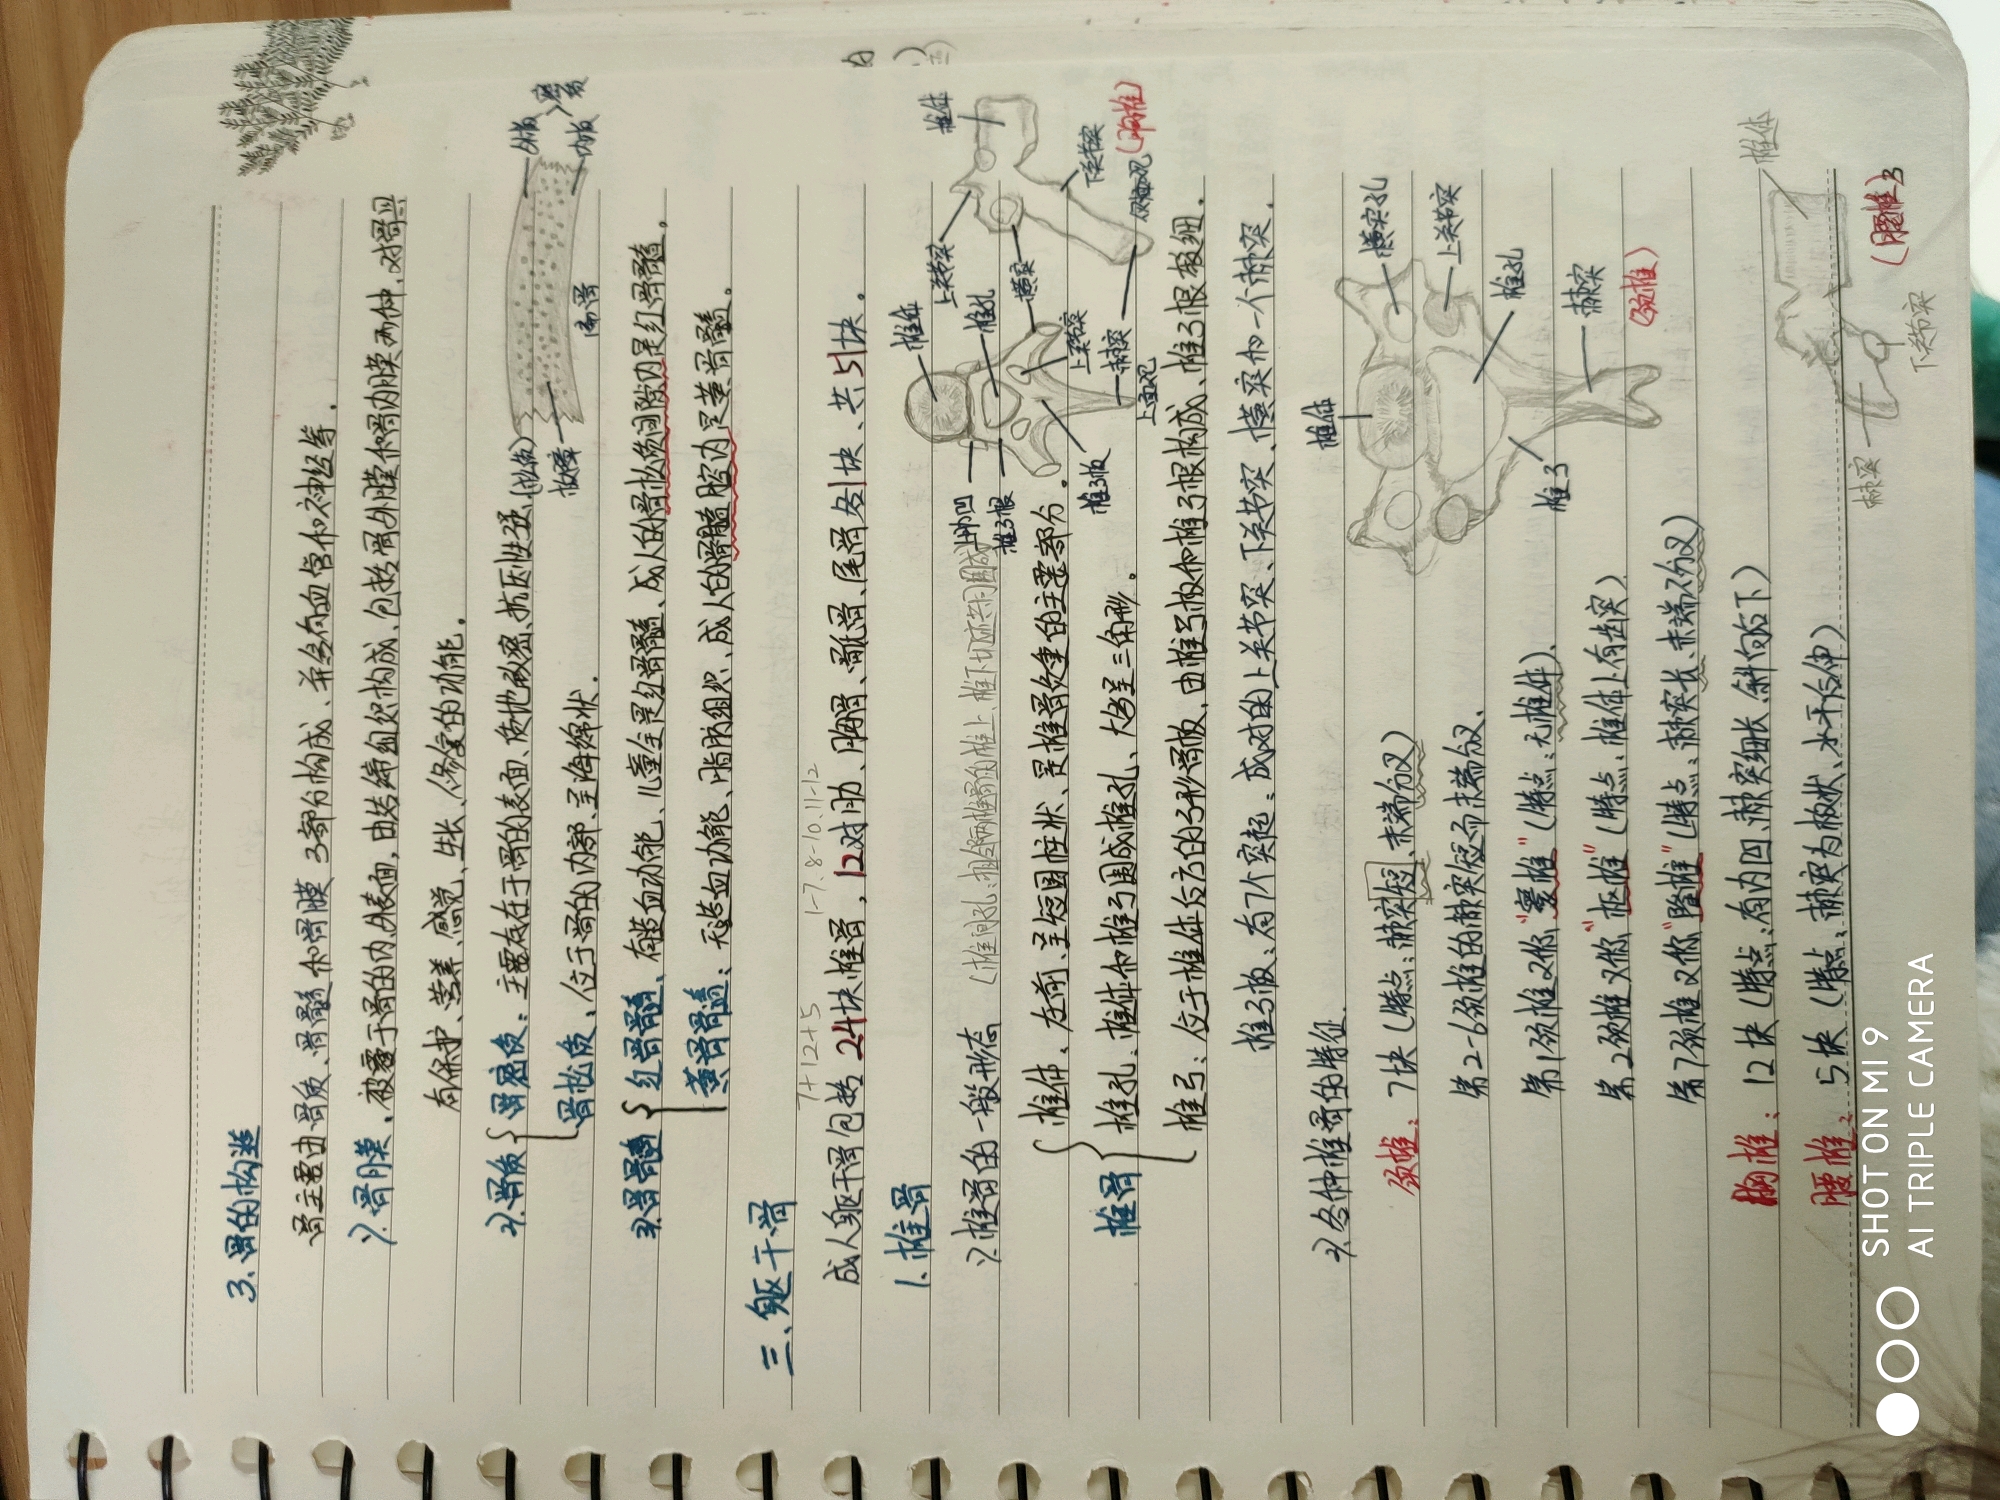 3.骨的构造
骨主要由骨质、骨髓和骨膜3部分构成、并多有血管和神经等.
1).骨膜、被覆于骨的内,外表面,由结缔组织构成、包括骨外膜和骨内膜两种.对骨具
有保护、营养、感觉、生长、修复的功能.
2).骨质
骨密质:主要存在于骨的表面、质地致密、抗压性强
骨松质、位于骨的内部.呈海绵状.
外板
内板
密质
(松质)
板障
扁骨
3).骨髓
红骨髓、有造血功能、儿童全是红骨髓、成人的骨松质间隙内是红骨髓.
黄骨髓:无造血功能、脂肪组织、成人的骨髓腔内是黄骨髓.
三、躯干骨
7+12+5
1-7.8-10.11-12
成人躯干骨包括24块椎骨,12对肋、胸骨、骶骨、尾骨各1块、共51块.
1.椎骨
1).椎骨的一般形态
(椎间孔:相邻两椎骨的椎上、椎下切迹共同围成
椎骨
椎体、在前、呈短圆柱状、是椎骨负重的主要部分.
椎孔:椎体和椎弓围成椎孔、大略呈三角形.
椎弓:位于椎体后方的弓形骨板,由椎弓板和椎弓根构成、椎弓根较细.
椎弓板:有7个突起:成对的上关节突、下关节突、横突和一个棘突.
椎体
上关节突
椎孔
横突
上关节突
棘突
椎弓板
椎弓根
椎体
下关节突
(胸椎)
2).各种椎骨的特征.
颈椎:7块(特点:棘突短、末端分叉)
第2-6颈椎的棘突短而末端分叉.
第1颈椎又称"寰椎"(特点:无椎体).
第2颈椎又称"枢椎"(特点:椎体上有齿突)
第7颈椎又称"隆椎"(特点:棘突长、末端不分叉)
胸椎:12块(特点:有肋凹、棘突细长、斜向后下)
腰椎:5块(特点:棘突为板状、水平后伸)
椎体
横突孔
上关节突
椎孔
棘突
椎弓
(颈椎)
椎体
棘突
下关节突
(腰椎)
SHOT ON MI 9
AI TRIPLE CAMERA